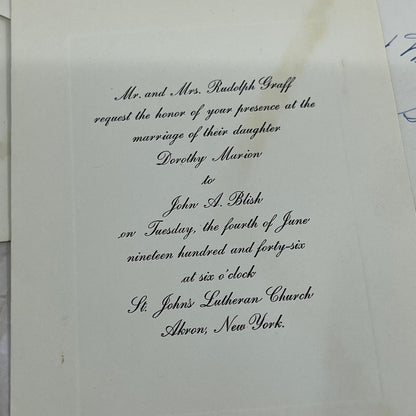 Mr. and Mrs. Rudolph Graff
request the honor of your presence at the
marriage of their daughter
Dorothy Marion
to
John A. Blish
on Tuesday, the fourth of June
nineteen hundred and forty-six
at six o'clock
St. John's Lutheran Church
Akron, New York.